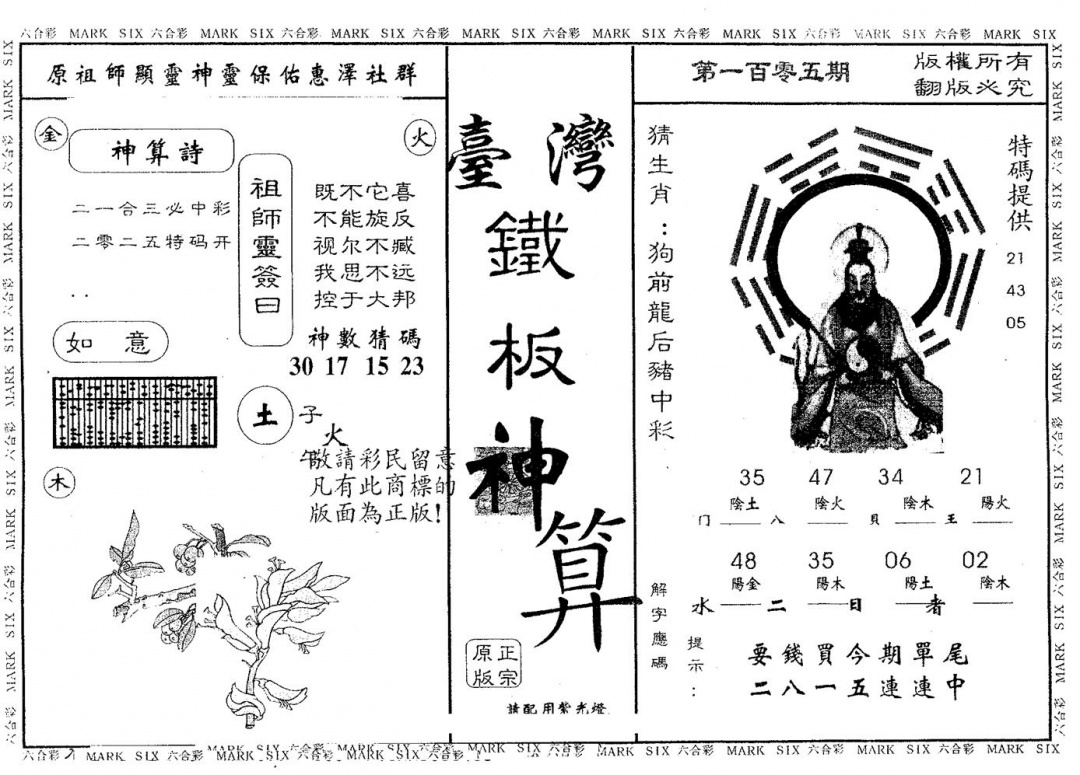 六合彩 MARK SIX 六合彩 MARK SIX 六合彩 MARK SIX 六合彩 MARK SIX 六合彩 MARK SIX 六合彩 MARK SIX 六合彩 MARK SIX 六合彩 MARK SIX
原祖師顯靈神靈保佑惠澤社群
金
火
神算詩
二一合三必中彩
二零二五特码开
..
如意
祖師靈簽曰
既不它喜
不能旋反
视尔不臧
我思不远
控于大邦
神數猜碼
30 17 15 23
土
子
火
午
敬請彩民留意
凡有此商標的
版面為正版!
木
臺灣
鐵板神算
正宗
原版
請配用紫光燈
第一百零五期
版權所有
翻版必究
猜生肖:狗前龍后豬中彩
特碼提供
21
43
05
35 47 34 21
陰土 陰火 陰木 陽火
门 八 貝 王
48 35 06 02
陽金 陽木 陽土 陰木
水 二 日 者
解字應碼
提示:
要錢買今期單尾
二八一五連連中
六合彩 MARK SIX 六合彩 MARK SIX 六合彩 MARK SIX 六合彩 MARK SIX 六合彩 MARK SIX 六合彩 MARK SIX 六合彩 MARK SIX